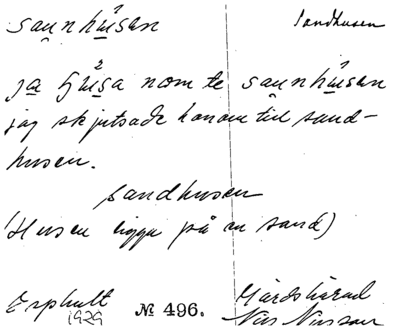 saunhúsen Sandhusen
ja húsa nom te saunhúsen
jag skjutsade honom till sand-
husen.
sandhusen
(Husen ligga på en sand)
Erphult Gärds härad
1929 № 496. Nils Nilsson